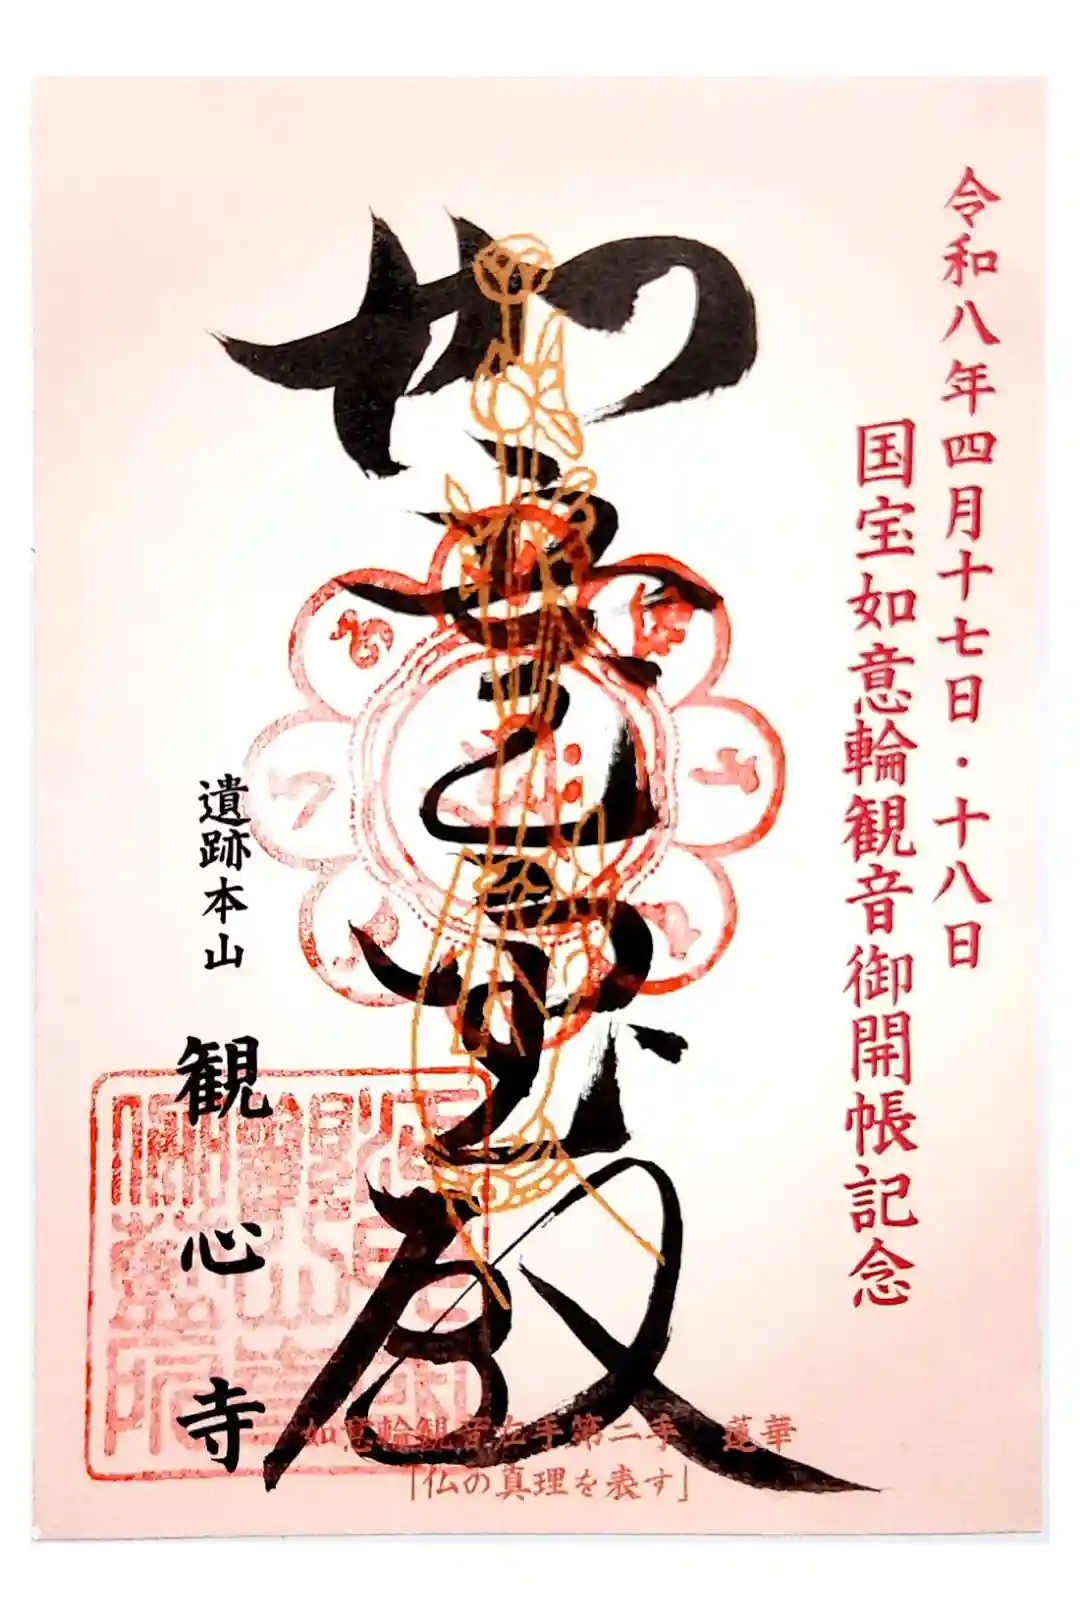 令和八年四月十七日・十八日
国宝如意輪観音御開帳記念
如意輪殿
遺跡本山
観心寺
如意輪観音左手第二手 蓮華
「仏の真理を表す」